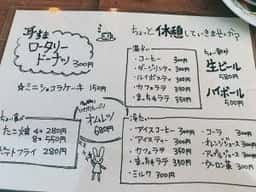 ロータリー
ドーナツ
300円
☆ミニショコラケーキ 150円
たこ焼 4ヶ 280円
8ヶ 550円
ポテトフライ 280円
オムレツ
680円
ちょっと休憩していきませんか?
・コーヒー 300円
・ダージリンティ 300円
・ルイボスティ 300円
・カフェラテ 350円
・まっ茶ラテ 350円
・アイスコーヒー 300円
・アイスティー 300円
・カフェラテ 350円
・まっ茶ラテ 350円
・ミルク 300円
・コーラ 300円
・オレンジジュース 300円
・アップルジュース 300円
・ウーロン茶 300円
生ビール
580円
ハイボール
500円